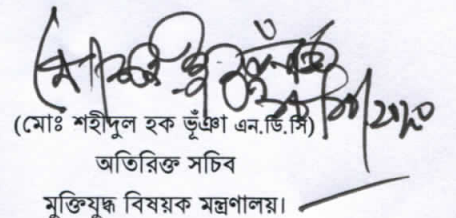 (মোঃ শহীদুল হক ভূঁঞা এন.ডি.সি)
অতিরিক্ত সচিব
মুক্তিযুদ্ধ বিষয়ক মন্ত্রণালয়।